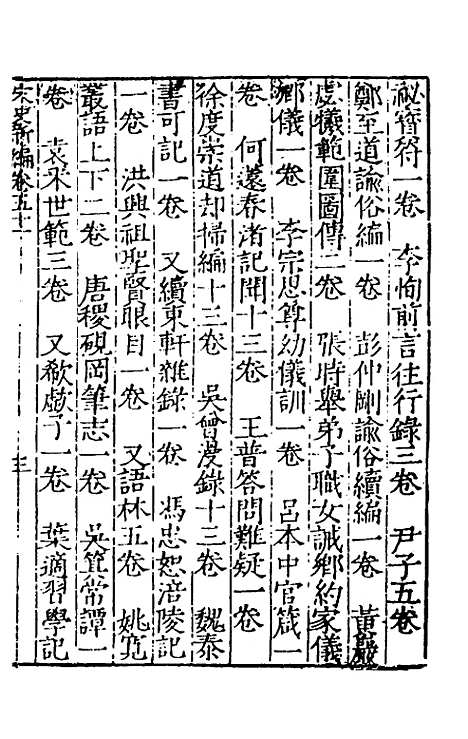 祕符一卷　李恂前言往行錄三卷　尹子五卷
鄭至道諭俗編一卷　彭仲剛諭俗續編一卷　黃巖
虙犧範圍圖傳二卷　張時舉弟子職女誡鄉約家儀
鄉儀一卷　李宗思尊幼儀訓一卷　呂本中官箴一
卷　何薳春渚記聞十三卷　王普答問難疑一卷
徐度崇道却掃編十三卷　吳曾漫錄十三卷　魏泰
書可記一卷　又續東軒雜錄一卷　馮忠恕涪陵記
一卷　洪興祖聖賢眼目一卷　又語林五卷　姚寬
叢語上下二卷　唐稷硯岡筆志一卷　吳箕常譚一
卷　袁采世範三卷　又欷歔子一卷　葉適習學記
宋史新編卷五十一　三